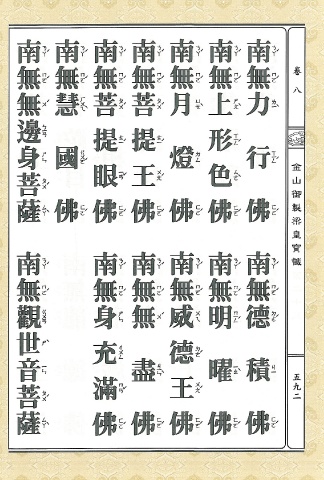 卷八
金山御製梁皇寶懺
五九二
南無力行佛　南無德積佛
南無上形色佛　南無明曜佛
南無月燈佛　南無威德王佛
南無菩提王佛　南無無盡佛
南無菩提眼佛　南無身充滿佛
南無慧國佛
南無無邊身菩薩　南無觀世音菩薩